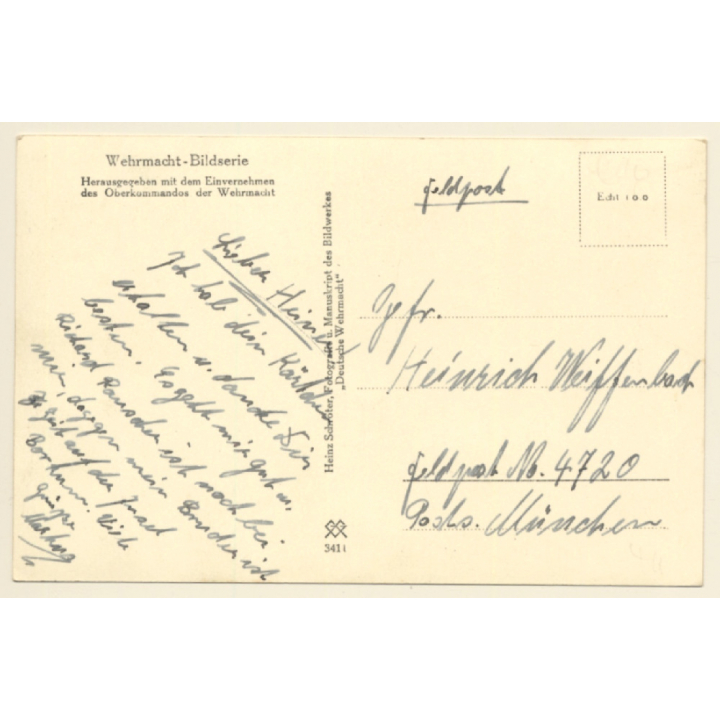 Wehrmacht-Bildserie
Herausgegeben mit dem Einvernehmen
des Oberkommandos der Wehrmacht
Lieber Heini!
Ich hab dein Kärtchen
erhalten u. danke Dir
bestens. Es geht mir gut u.
Richard Rauscher ist noch bei
mir, dagegen mein Bruder ist
jetzt auf der Insel
Borkum. Viele
Grüße
Heinz Schröter, Fotografie u. Manuskript des Bildwerkes
„Deutsche Wehrmacht"
3411
Feldpost
Echt Foto
Gfr.
Heinrich Weiffenbach
Feldpost No. 4720
Posts. München